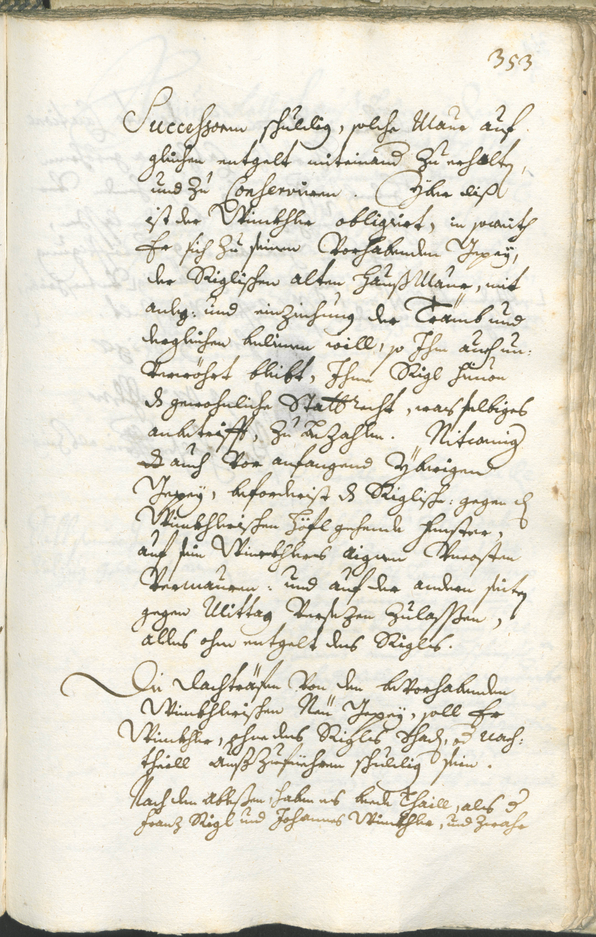 353
Successorn schuldig, solche Maur auf
gleichen entgelt miteinand zu erhalten,
und zu Conserviren. Yber diß
ist der Winkhler obligiert, in
Er sich zu seinem Vorhabenden
der Riglischen alten Hauß Maur, mit
anleg: und einziehung der Trämb und
dergleichen bedienen will, so Ihm auch un:
verwöhrt bleibt, Ihme Rigl hievon
dz gewohnliche Stattrecht, was selbiges
anbetrifft, zu bezahlen. Nitweniger
auch vor anfangend ybrigen
, beforderist dz Riglische: gegen
Winkhlerischen Höfl gehende Fenster,
auf sein Winkhlers aignen Uncosten
Vermauren: und auf der andern seiten
gegen Mittag Versezen zulassen,
alles ohne entgelt des Riglers.
Die Dachträffen von dem bevorhabenden
Winkhlerischen Neu , soll Er
Winkhler, ohne des Riglers schad, und nach:
theill auß zuführen schuldig sein.
Nach dem Ablesen haben es beede Thaill, als
Franz Rigl und Johannes Winkhler, und